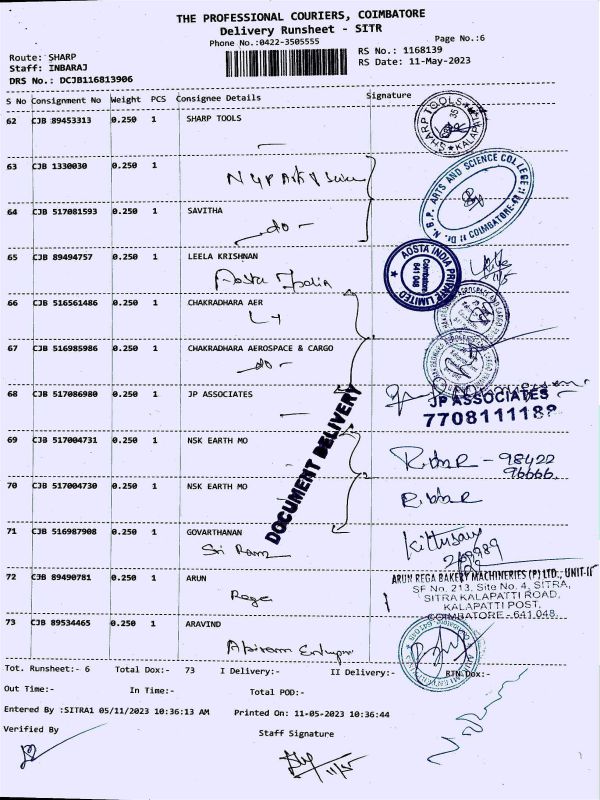 THE PROFESSIONAL COURIERS, COIMBATORE
Delivery Runsheet - SITR
Phone No.:0422-3505555
Page No.:6
Route: SHARP
RS No.: 1168139
Staff: INBARAJ
RS Date: 11-May-2023
DRS No.: DCJB116813906
S No Consignment No Weight PCS Consignee Details Signature
62 CJB 89453313 0.250 1 SHARP TOOLS
SHARP TOOLS
63 CJB 1330030 0.250 1
N G P Arts & Science
N. G. P. ARTS AND SCIENCE COLLEGE
COIMBATORE-48
64 CJB 517081593 0.250 1 SAVITHA
-do-
65 CJB 89494757 0.250 1 LEELA KRISHNAN
Aosta India
AOSTA INDIA PRIVATE LIMITED
Coimbatore
641 048
11/5
66 CJB 516561486 0.250 1 CHAKRADHARA AER
67 CJB 516985986 0.250 1 CHAKRADHARA AEROSPACE & CARGO
-do-
68 CJB 517086980 0.250 1 JP ASSOCIATES
JP ASSOCIATES
DOCUMENT DELIVERY
69 CJB 517004731 0.250 1 NSK EARTH MO
98422
96666
70 CJB 517004730 0.250 1 NSK EARTH MO
71 CJB 516987908 0.250 1 GOVARTHANAN
Sri Ram
72 CJB 89490781 0.250 1 ARUN
Rega
ARUN REGA BAKERY MACHINERIES (P) LTD., UNIT-II
SF No. 213, Site No. 4, SITRA,
SITRA KALAPATTI ROAD,
KALAPATTI POST,
COIMBATORE - 641 048.
73 CJB 89534465 0.250 1 ARAVIND
Abirami
Tot. Runsheet:- 6 Total Dox:- 73 I Delivery:- II Delivery:- RTN Dox:-
Out Time:- In Time:- Total POD:-
Entered By :SITRA1 05/11/2023 10:36:13 AM Printed On: 11-05-2023 10:36:44
Verified By
Staff Signature
11/5